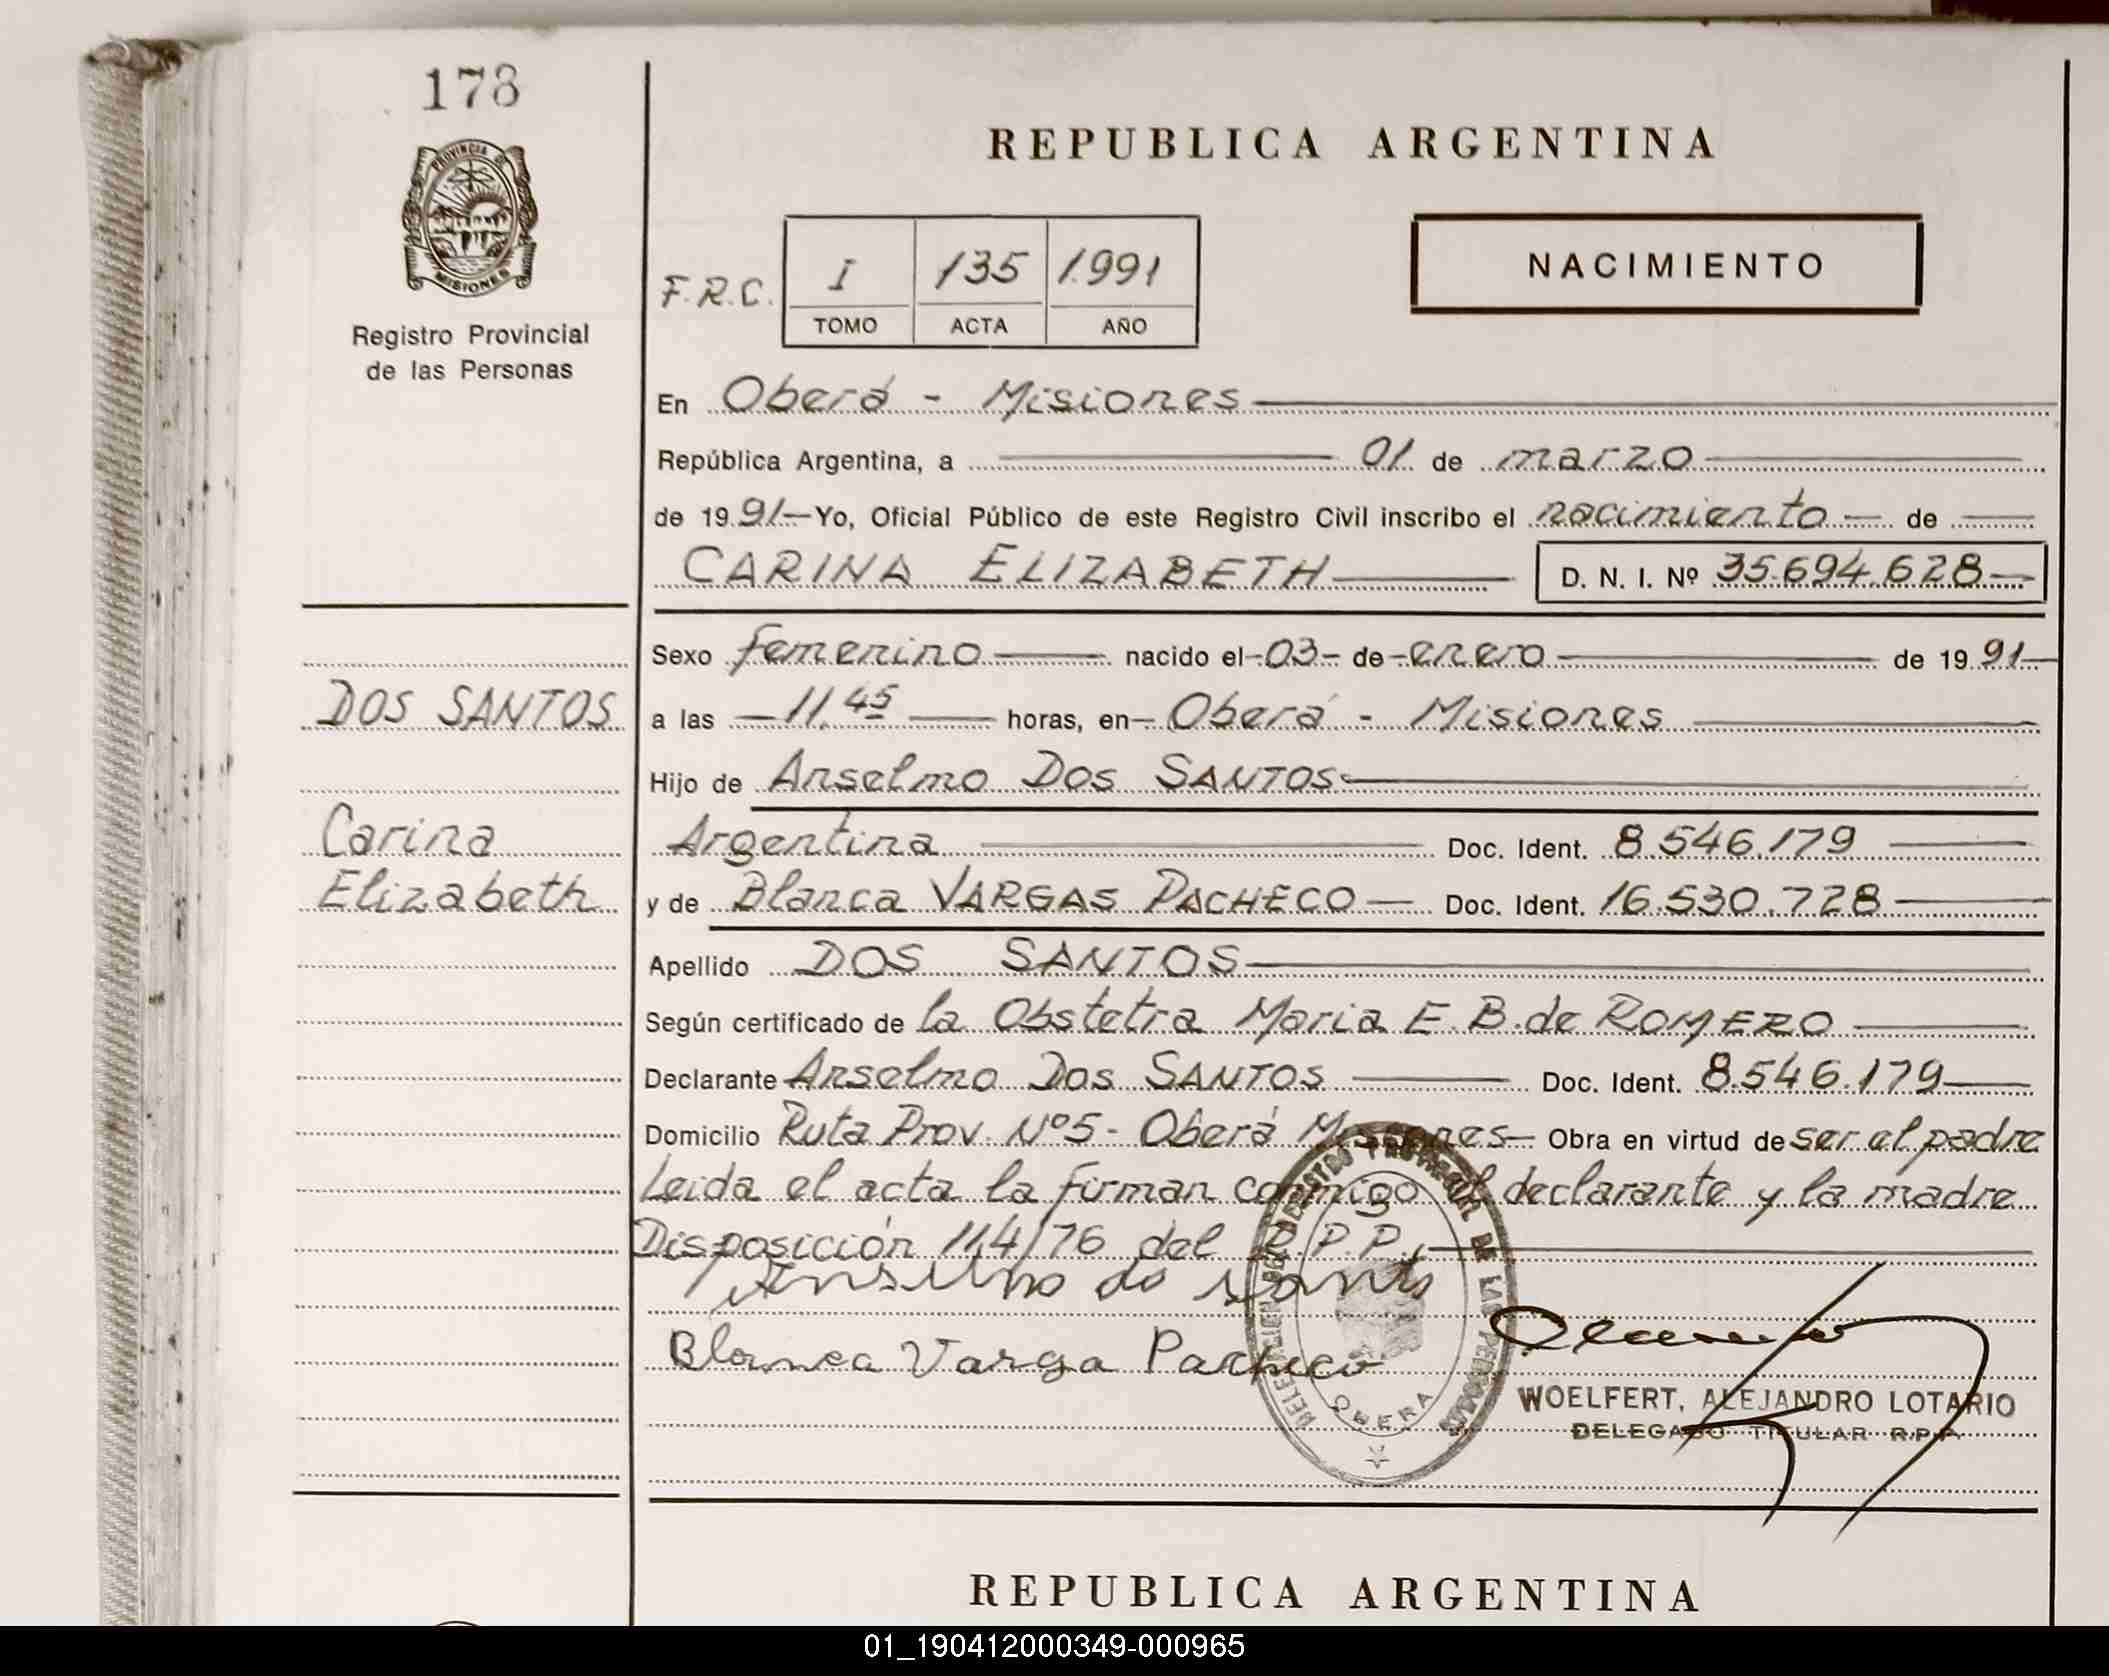 178
PROVINCIA DE
MISIONES
Registro Provincial
de las Personas
REPUBLICA ARGENTINA
F.R.C.
I 135 1.991
TOMO ACTA AÑO
NACIMIENTO
En Oberá - Misiones
República Argentina, a 01 de marzo
de 1991 Yo, Oficial Público de este Registro Civil inscribo el nacimiento de
CARINA ELIZABETH D. N. I. Nº 35.694.628
Sexo Femenino nacido el 03 de enero de 1991
DOS SANTOS
a las 11,45 horas, en Oberá - Misiones
Hijo de Anselmo DOS SANTOS
Carina
Argentina Doc. Ident. 8.546.179
Elizabeth
y de Blanca VARGAS PACHECO Doc. Ident. 16.530.728
Apellido DOS SANTOS
Según certificado de la Obstetra Maria E. B. de ROMERO
Declarante Anselmo DOS SANTOS Doc. Ident. 8.546.179
Domicilio Ruta Prov. Nº5 - Oberá Misiones Obra en virtud de ser el padre
Leida el acta la firman conmigo el declarante y la madre
Disposición 114/76 del R.P.P.
Anselmo do santo
Blanca Varga Pacheco
OBERA
WOELFERT, ALEJANDRO LOTARIO
DELEGADO TITULAR R.P.P.
REPUBLICA ARGENTINA
01_190412000349-000965